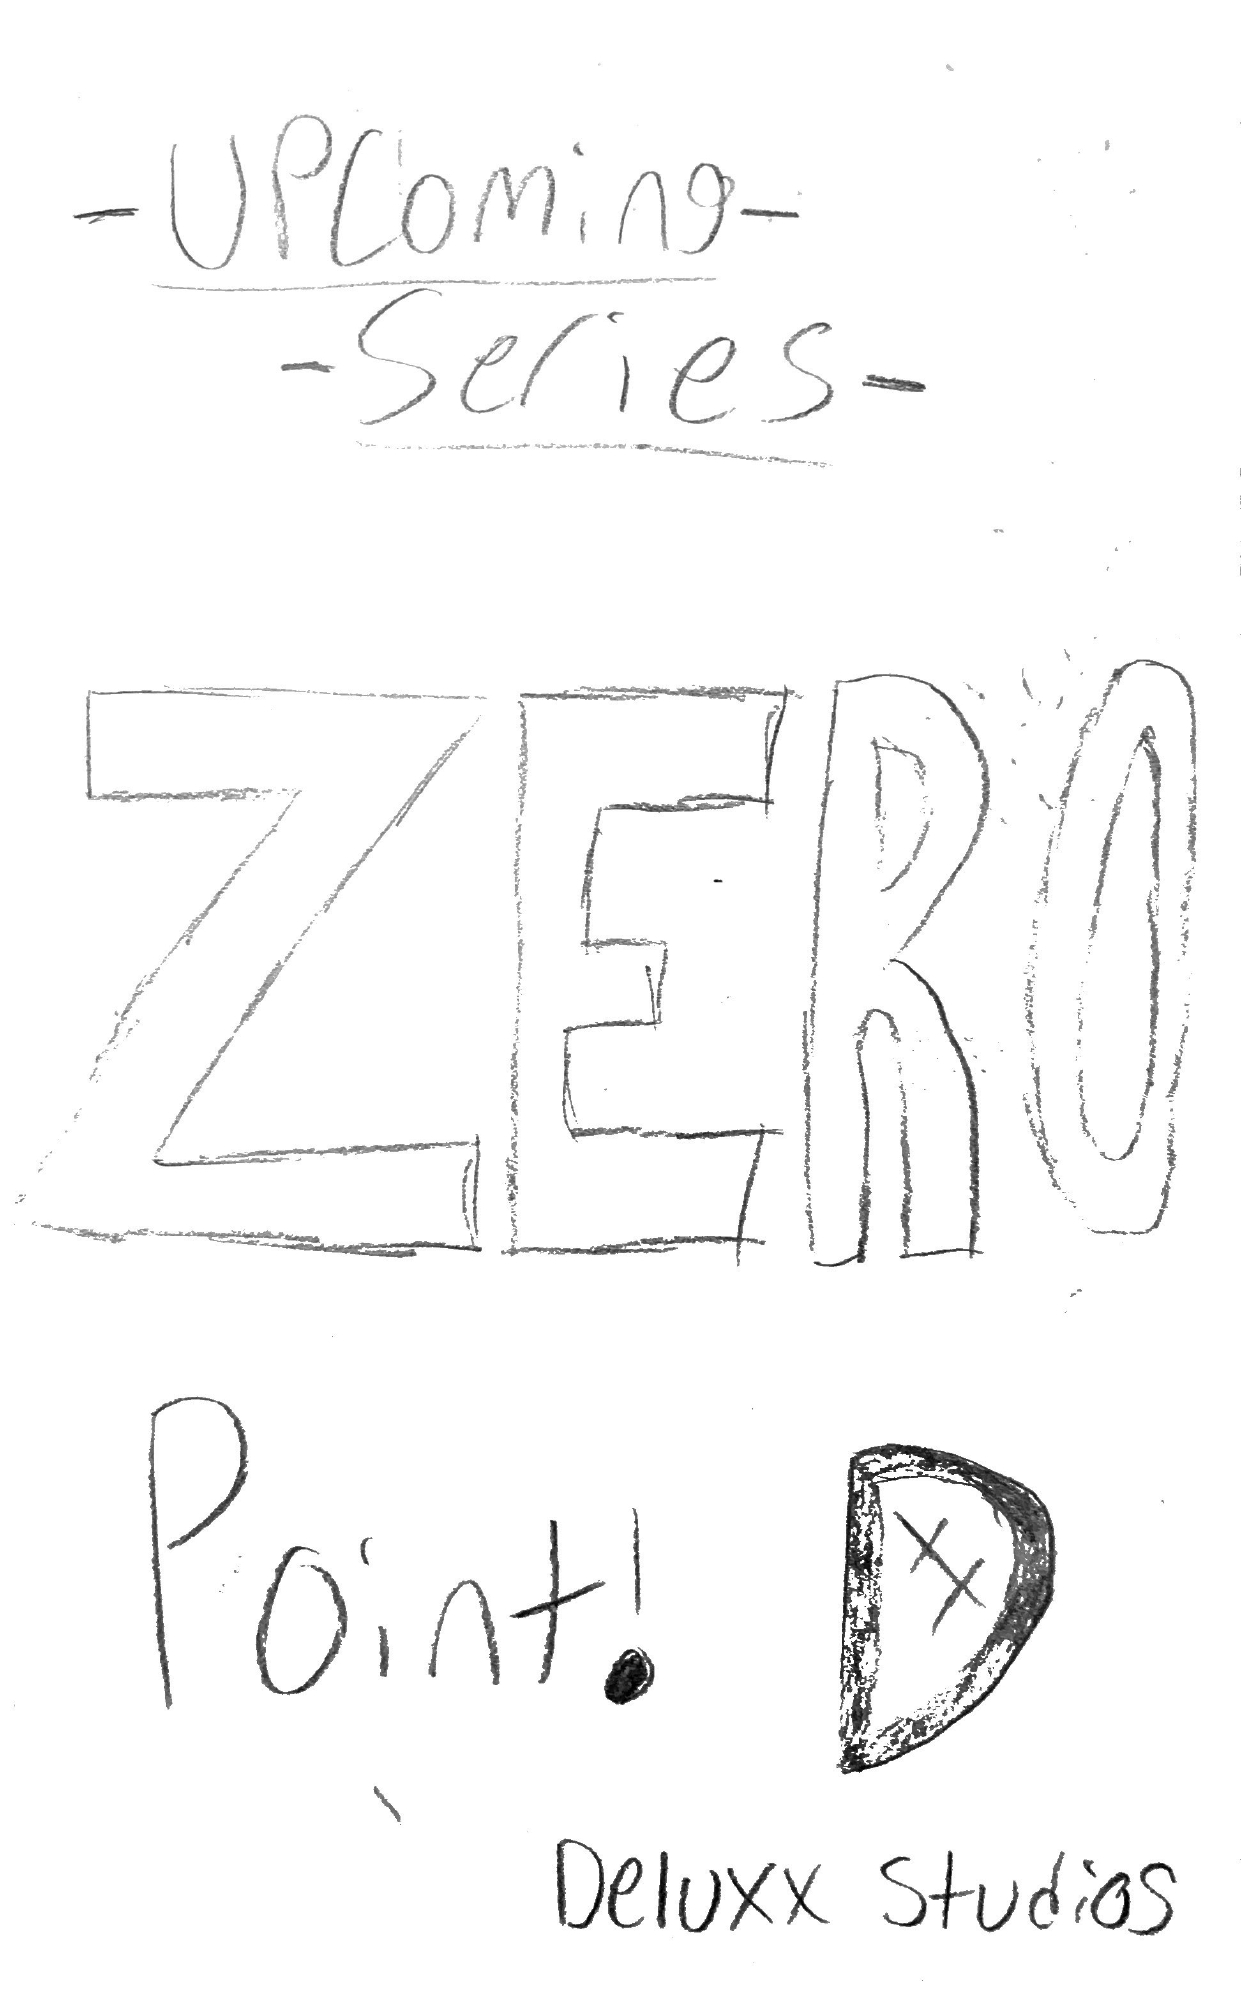 -UPComing-
-Series-
ZERO
Point!
D
XX
Deluxx Studios